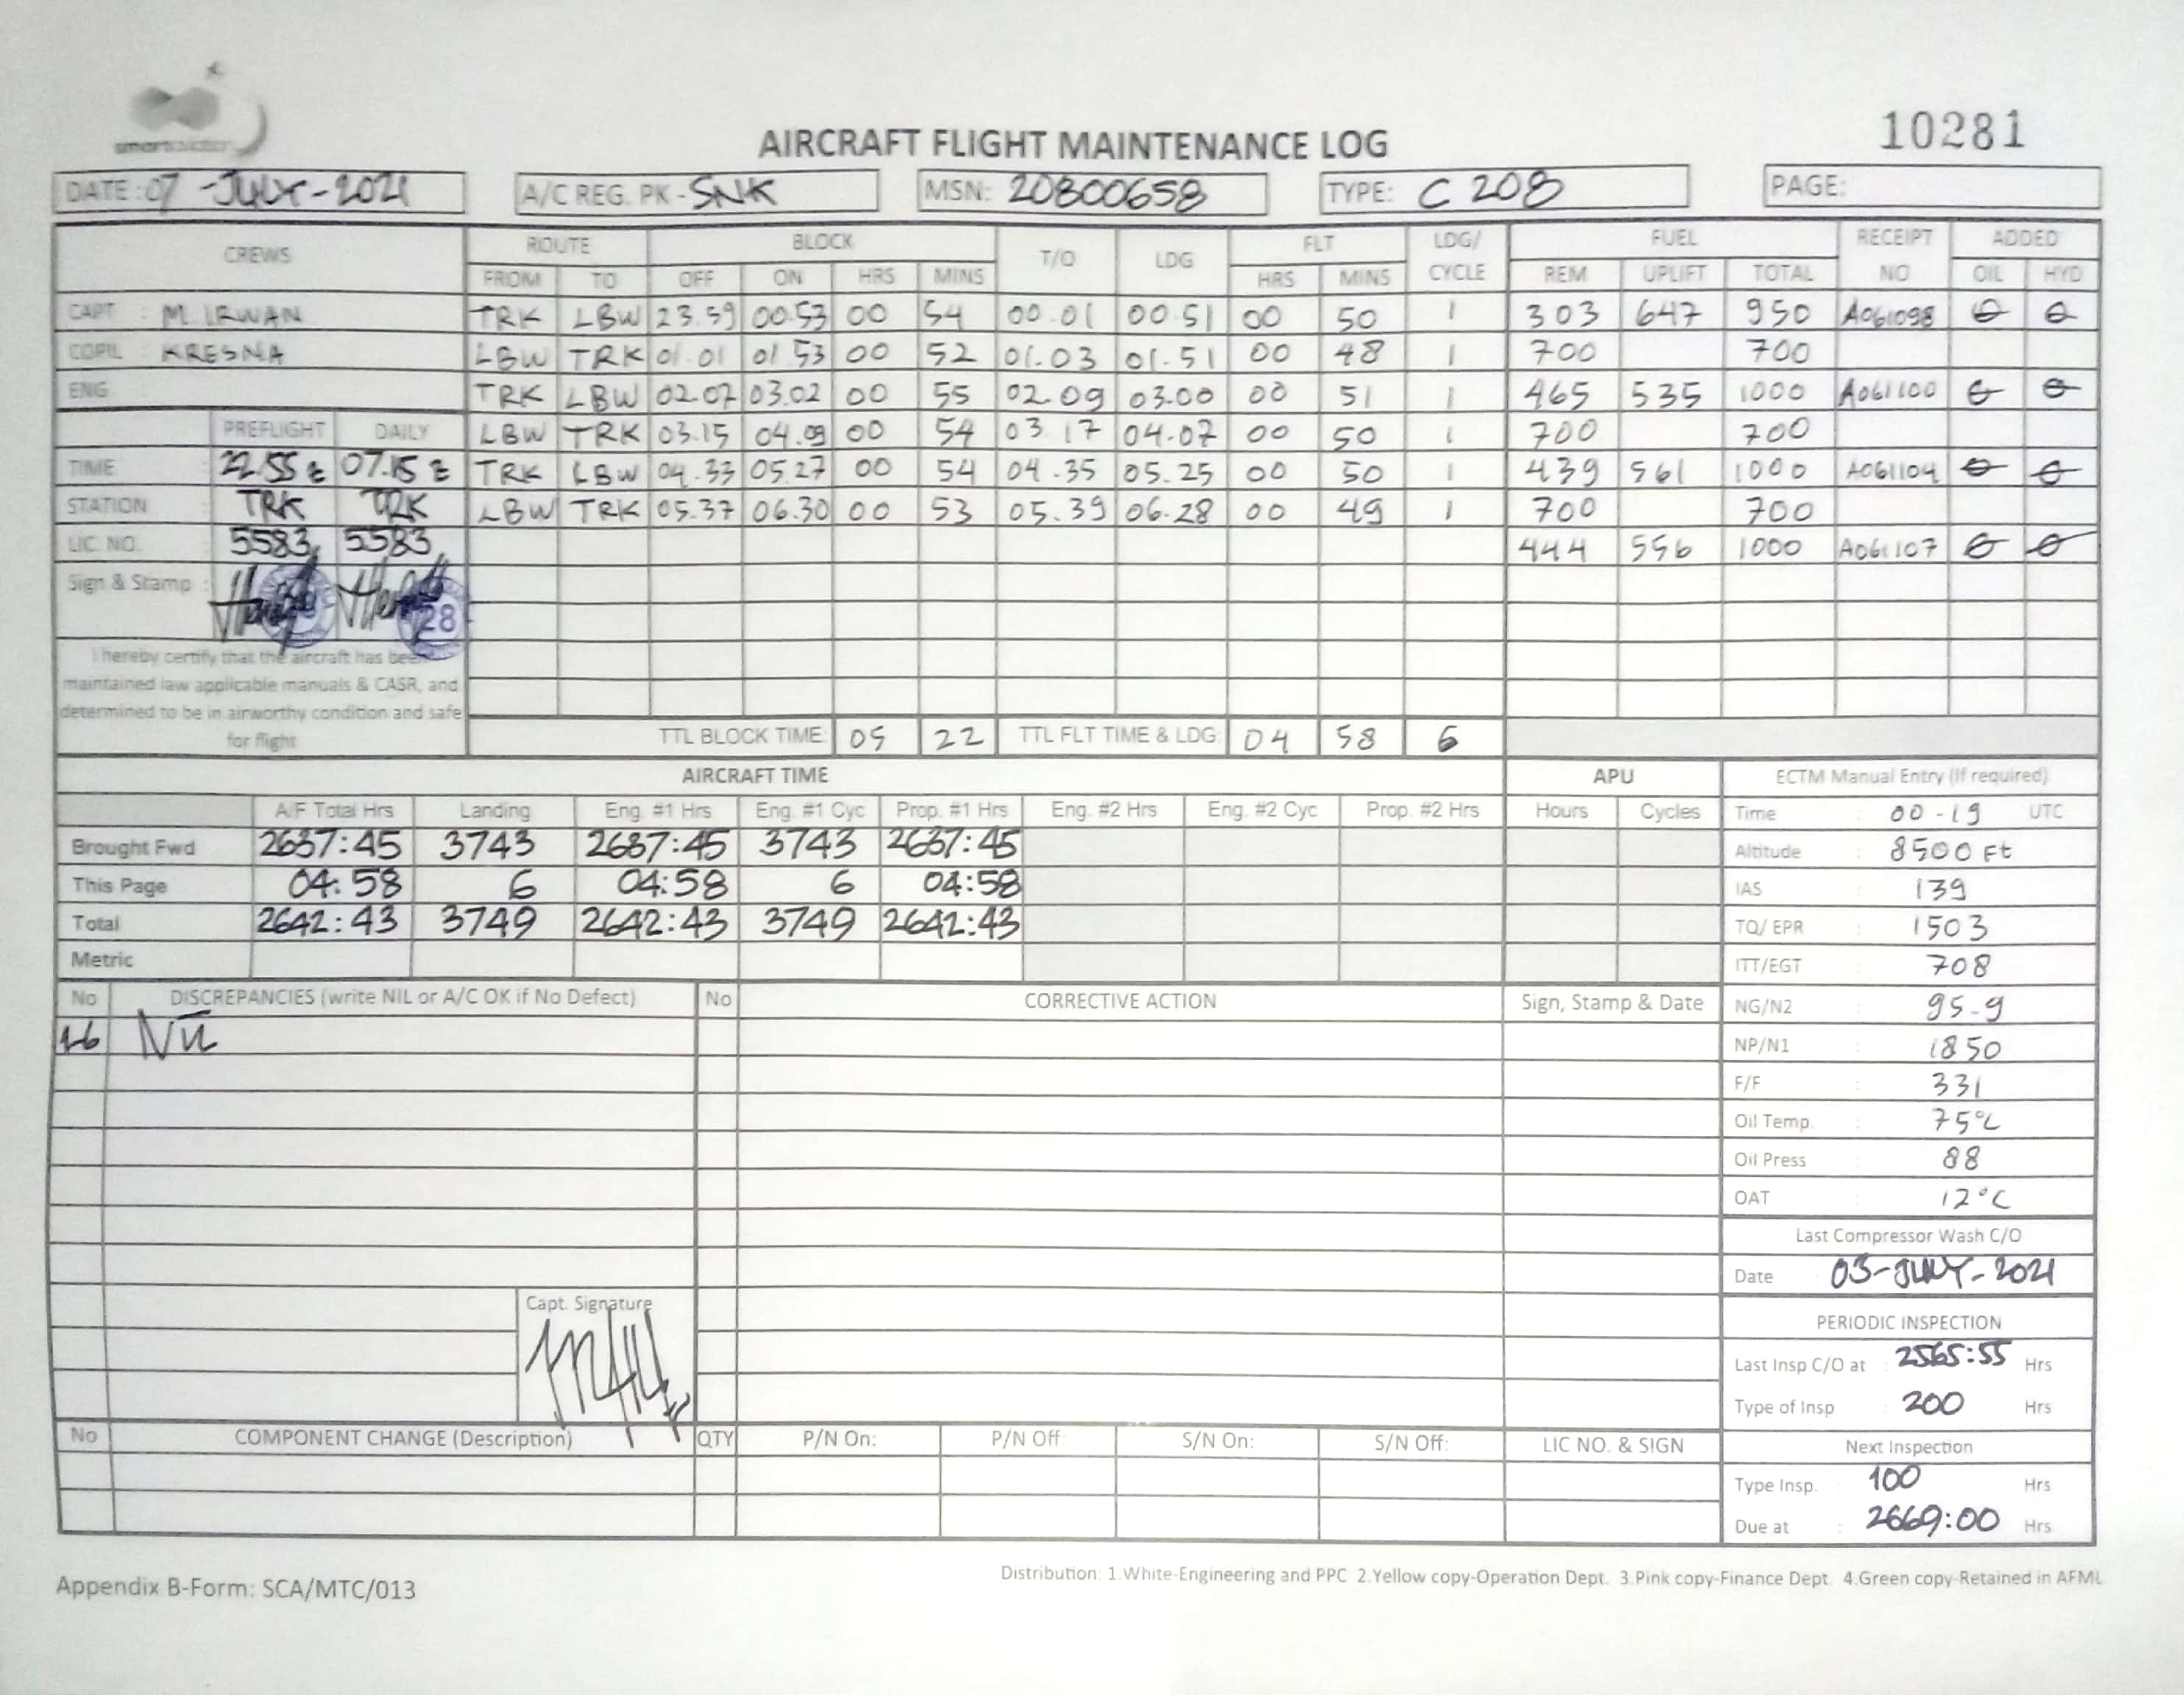 smartaviation
10281
AIRCRAFT FLIGHT MAINTENANCE LOG
DATE : 07 -JULY-2021 A/C REG. PK - SNK MSN: 20800658 TYPE: C 208 PAGE:
CREWS ROUTE BLOCK T/O LDG FLT LDG/ CYCLE FUEL RECEIPT NO ADDED
FROM TO OFF ON HRS MINS HRS MINS REM UPLIFT TOTAL OIL HYD
CAPT : M. IRWAN TRK LBW 23.59 00.53 00 54 00.01 00.51 00 50 1 303 647 950 A061098 0 0
COPIL : KRESNA LBW TRK 01.01 01.53 00 52 01.03 01.51 00 48 1 700 700
ENG TRK LBW 02.07 03.02 00 55 02.09 03.00 00 51 1 465 535 1000 A061100 0 0
PREFLIGHT DAILY LBW TRK 03.15 04.09 00 54 03 17 04.07 00 50 1 700 700
TIME : 22.55 z 07.15 z TRK LBW 04.33 05.27 00 54 04.35 05.25 00 50 1 439 561 1000 A061104 0 0
STATION : TRK TRK LBW TRK 05.37 06.30 00 53 05.39 06.28 00 49 1 700 700
LIC. NO. : 5583 5583 444 556 1000 A061107 0 0
Sign & Stamp : 28
I hereby certify that the aircraft has been
maintained iaw applicable manuals & CASR, and
determined to be in airworthy condition and safe
for flight
TTL BLOCK TIME: 05 22 TTL FLT TIME & LDG: 04 58 6
AIRCRAFT TIME APU ECTM Manual Entry (If required)
A/F Total Hrs Landing Eng. #1 Hrs Eng. #1 Cyc Prop. #1 Hrs Eng. #2 Hrs Eng. #2 Cyc Prop. #2 Hrs Hours Cycles Time : 00-19 UTC
Brought Fwd 2637:45 3743 2637:45 3743 2637:45 Altitude : 8500 Ft
This Page 04:58 6 04:58 6 04:58 IAS : 139
Total 2642:43 3749 2642:43 3749 2642:43 TQ/ EPR : 1503
Metric ITT/EGT : 708
No DISCREPANCIES (write NIL or A/C OK if No Defect) No CORRECTIVE ACTION Sign, Stamp & Date NG/N2 : 95-9
Nil
NP/N1 : 1850
F/F : 331
Oil Temp. : 75°C
Oil Press : 88
OAT : 12°C
Last Compressor Wash C/O
Date : 03-JULY-2021
Capt. Signature
PERIODIC INSPECTION
Last Insp C/O at : 2565:55 Hrs
Type of Insp : 200 Hrs
No COMPONENT CHANGE (Description) QTY P/N On: P/N Off: S/N On: S/N Off: LIC NO. & SIGN Next Inspection
Type Insp. : 100 Hrs
Due at : 2669:00 Hrs
Appendix B-Form: SCA/MTC/013
Distribution: 1.White-Engineering and PPC 2.Yellow copy-Operation Dept. 3.Pink copy-Finance Dept 4.Green copy-Retained in AFML